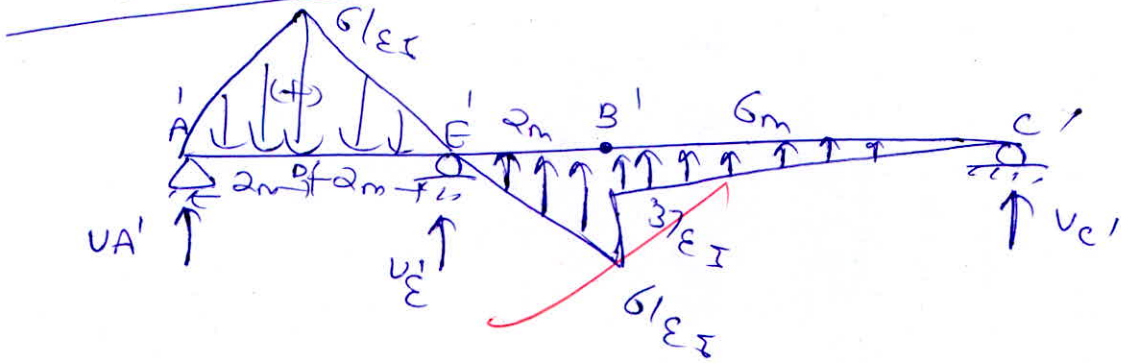 6/εI
(+)
A'
E'
2m
B'
6m
C'
2m
D'
2m
VA'
VE'
3/εI
VC'
6/εI